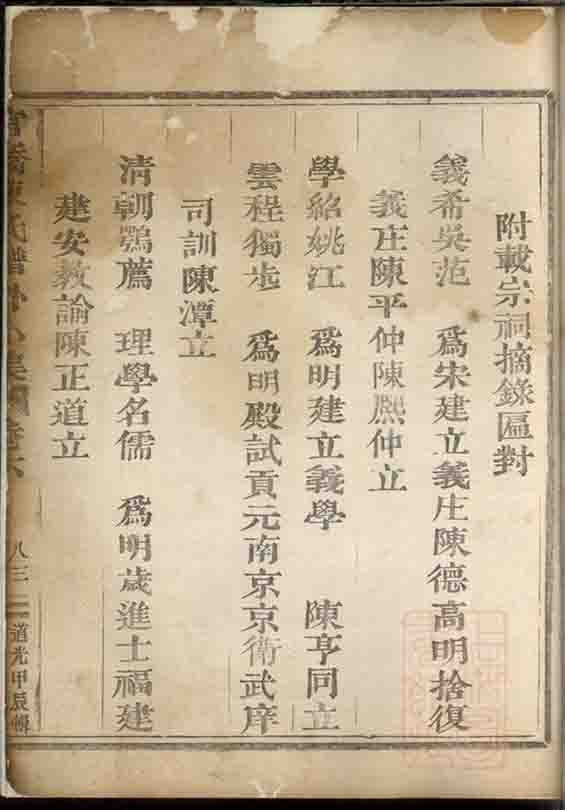 附載宗祠摘錄匾對
義希吳范　爲宋建立義庄陳德高明捨復
義庄陳平仲陳熙仲立
學紹姚江　爲明建立義學　陳亨同立
雲程獨步　爲明殿試貢元南京京衛武庠
司訓陳潭立
清朝鶚薦　理學名儒　爲明歲進士福建
建安教諭陳正道立
陳氏譜
八三
道光甲辰輯